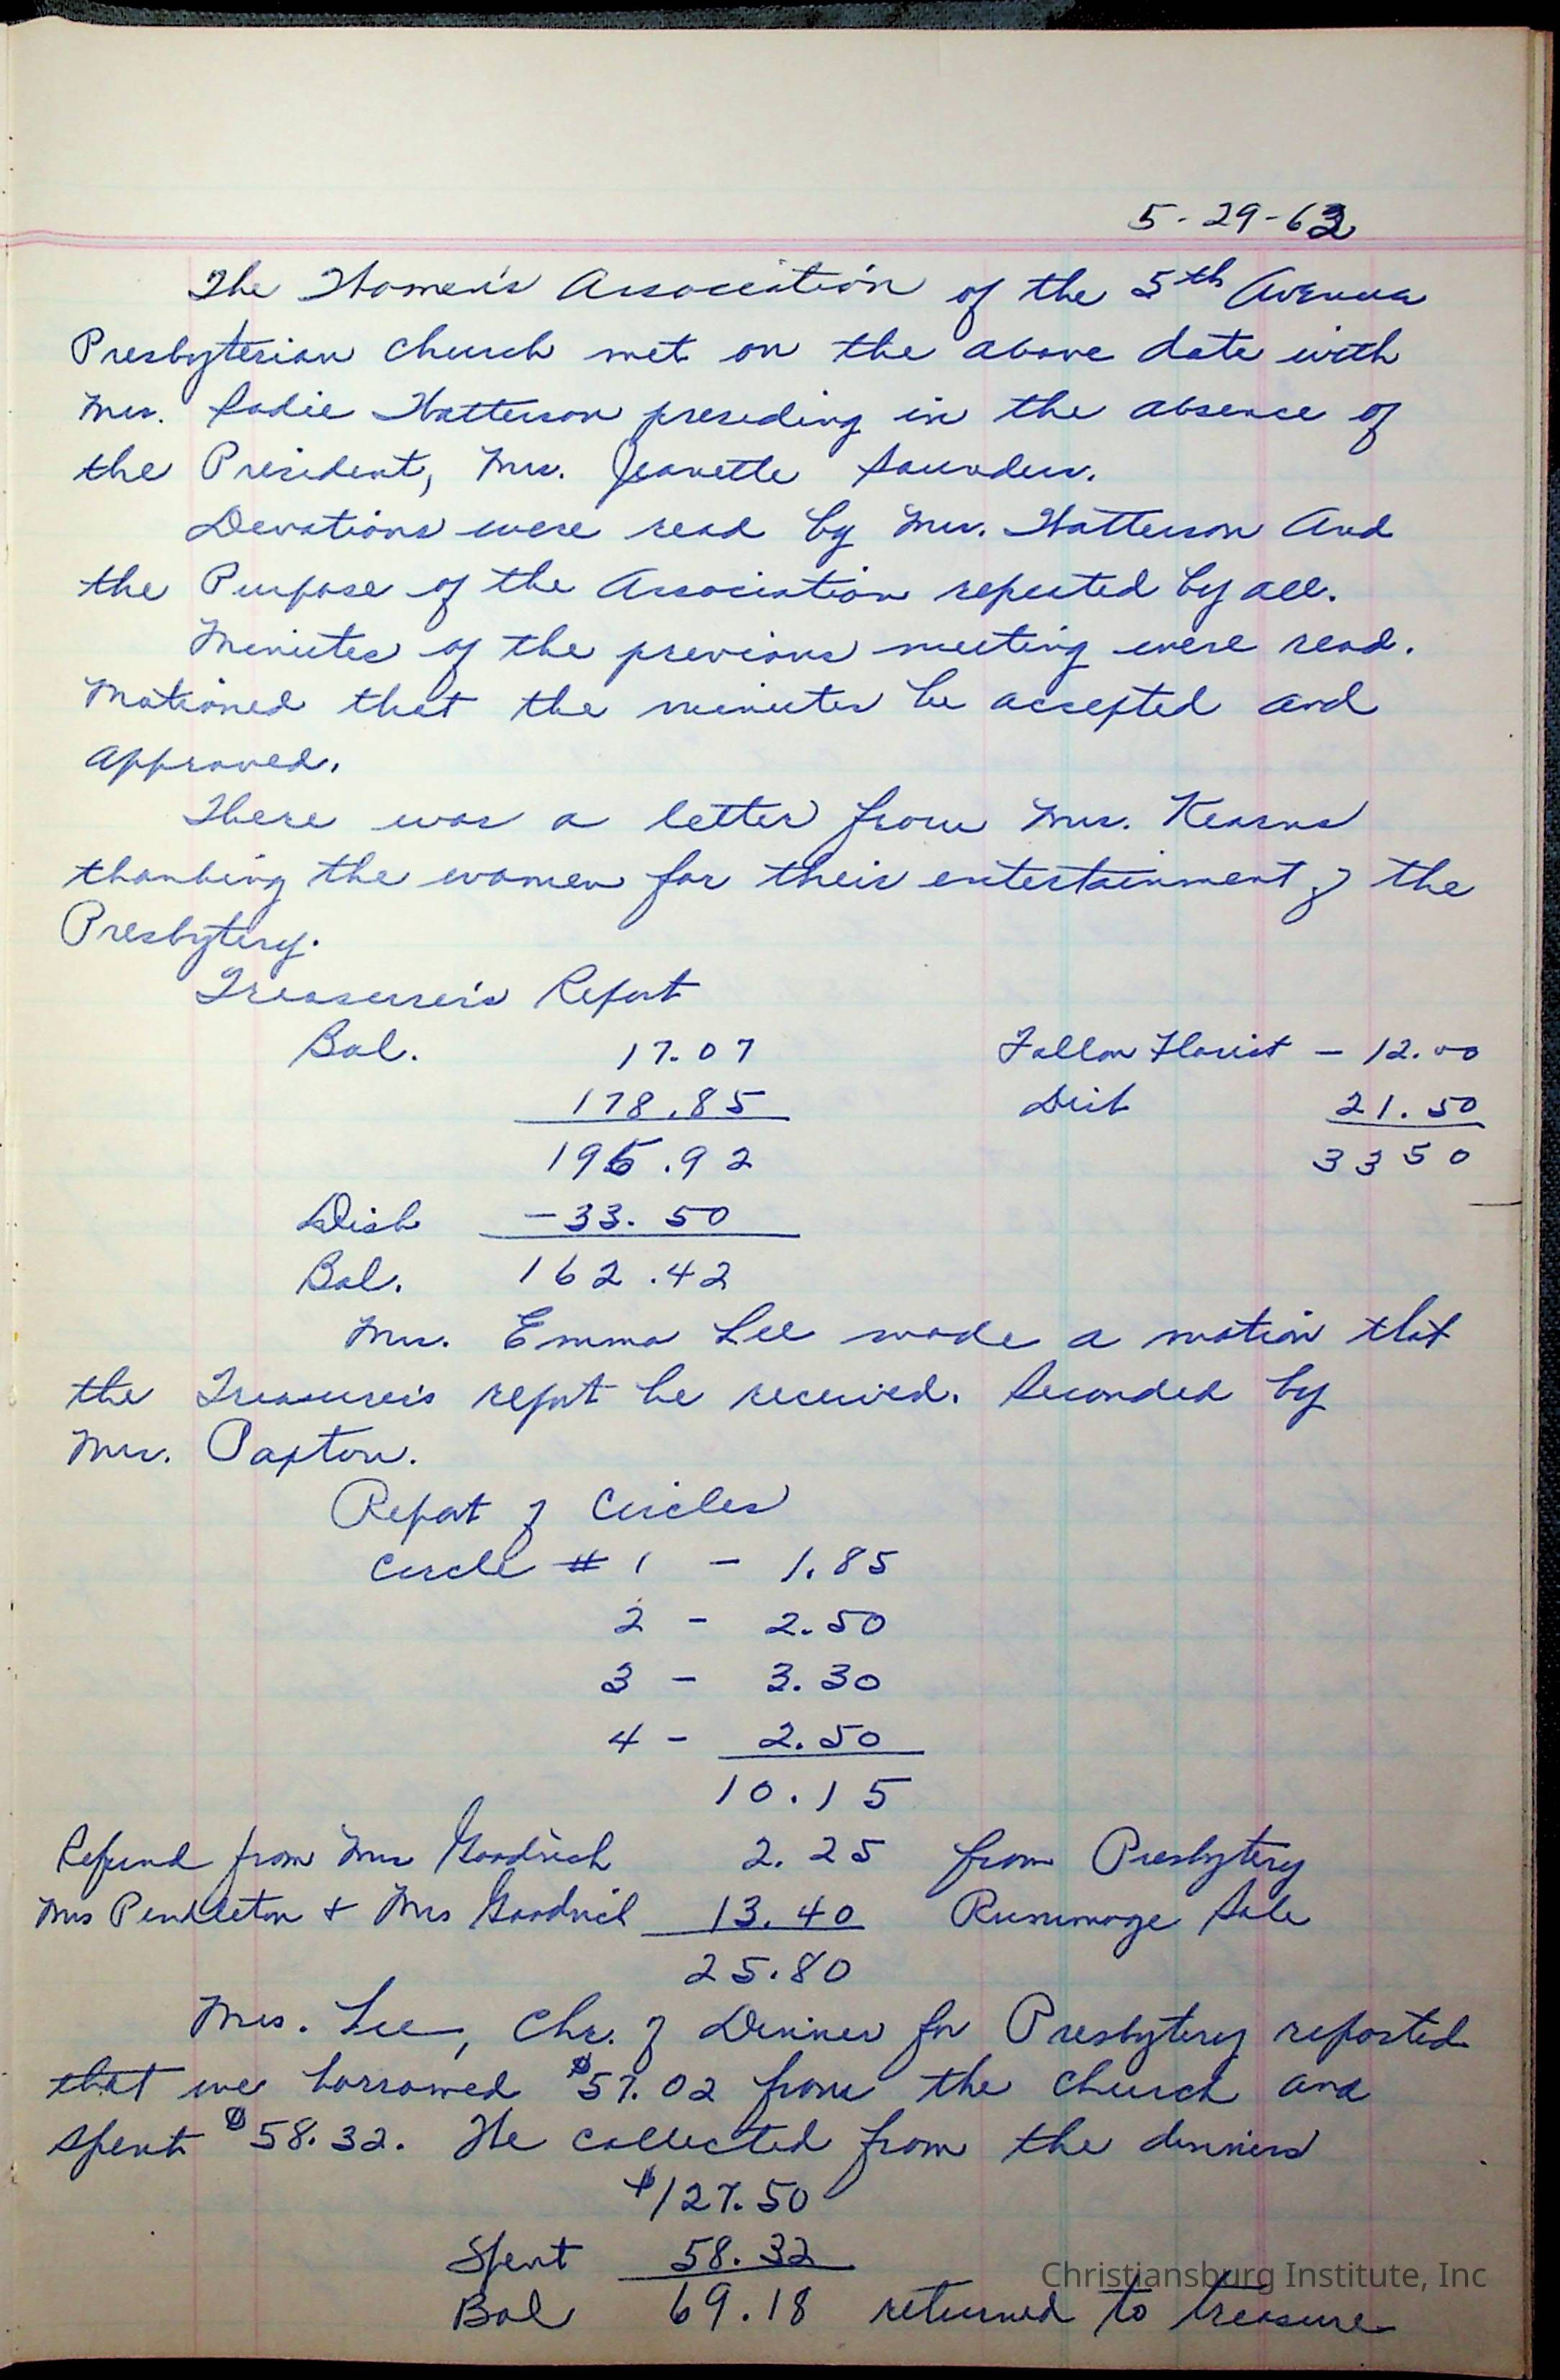 5-29-62
The Women's Association of the 5th Avenue
Presbyterian Church met on the above date with
Mrs. Sadie Watterson presiding in the absence of
the President, Mrs. Jeanette Saunders.
Devotions were read by Mrs. Watterson and
the Purpose of the Association repeated by all.
Minutes of the previous meeting were read.
Motioned that the minutes be accepted and
approved.
There was a letter from Mrs. Kearns
thanking the women for their entertainment of the
Presbytery.
Treasurer's Report
Bal. 17.07 Fallon Florist - 12.00
178.85 Disb 21.50
195.92 3350
Disb -33.50
Bal. 162.42
Mrs. Emma Lee made a motion that
the Treasurer's report be received. Seconded by
Mrs. Paxton.
Report of Circles
Circle # 1 - 1.85
2 - 2.50
3 - 3.30
4 - 2.50
10.15
Refund from Mrs Goodrich 2.25 from Presbytery
Mrs Pendleton + Mrs Goodrich 13.40 Rummage Sale
25.80
Mrs. Lee, Chr. of Dinner for Presbytery reported
that we borrowed $57.02 from the church and
spent $58.32. We collected from the dinners
$127.50
Spent 58.32
Bal 69.18 returned to treasure
Christiansburg Institute, Inc